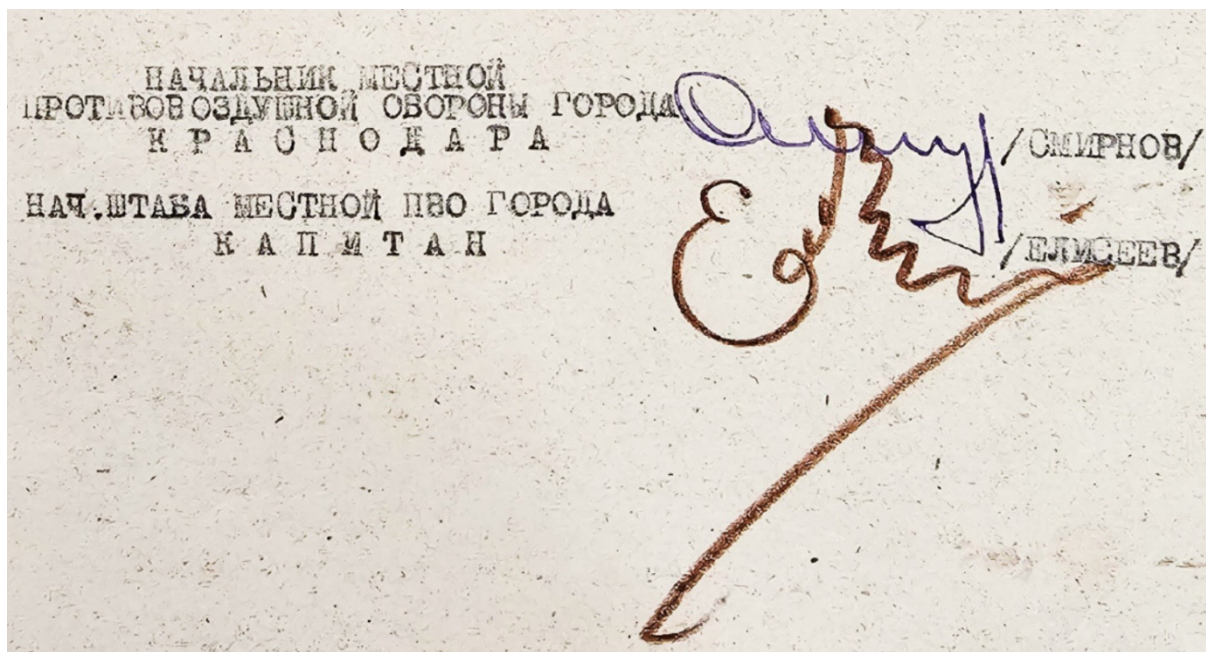 НАЧАЛЬНИК МЕСТНОЙ
ПРОТИВОВОЗДУШНОЙ ОБОРОНЫ ГОРОДА
К Р А С Н О Д А Р А /СМИРНОВ/
НАЧ.ШТАБА МЕСТНОЙ ПВО ГОРОДА
К А П И Т А Н /ЕЛИСЕЕВ/